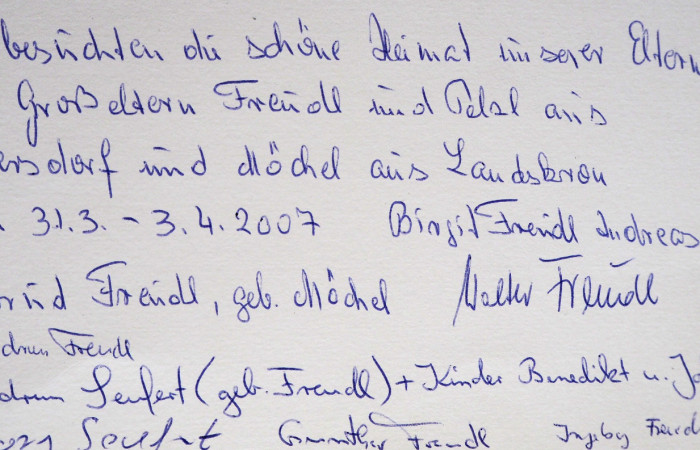 besuchten die schöne Heimat unserer Eltern
Großeltern Freudl und Pelzl aus
ersdorf und Möchel aus Landskron
31.3. - 3.4.2007 Birgit Freudl Andreas
Freudl, geb. Möchel Walter Freudl
drun Freudl
drun Seufert (geb. Freudl) + Kinder Benedikt u. Jo
Seufert Günther Freudl Ingeborg Freudl